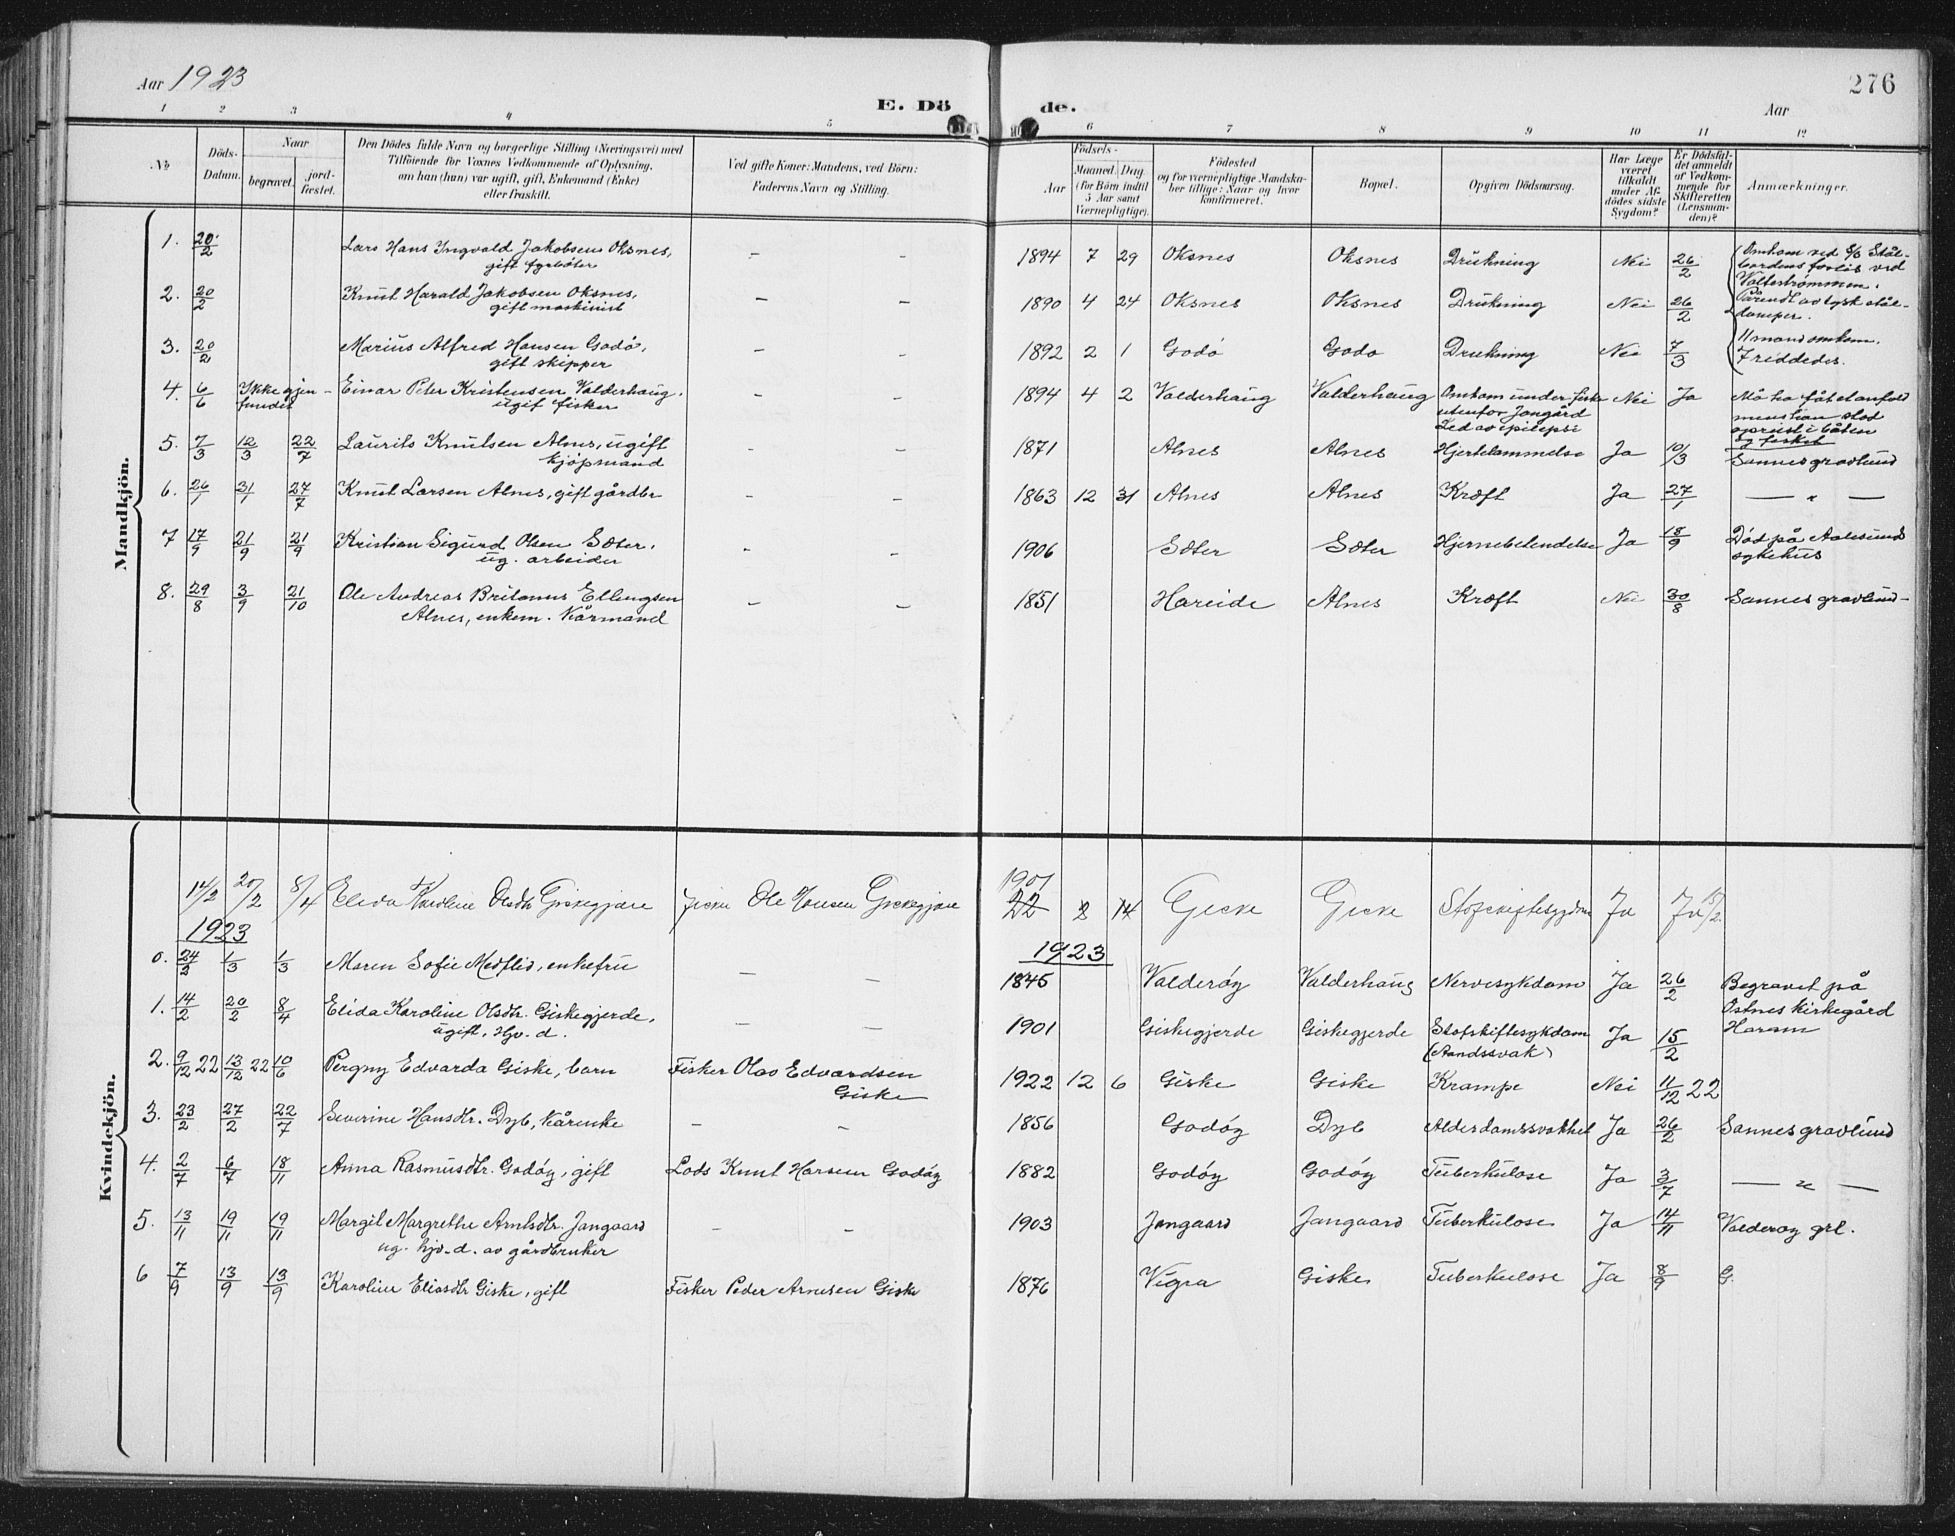 Aar 1923
E. Dö de.
Aar
276
1 2 3 4 5 6 7 8 9 10 11 12
No
Döds-Datum.
Naar
begravet.
jord-fæstet.
Den Dödes fulde Navn og borgerlige Stilling (Næringsvei) med
Tilföiende for Voxnes Vedkommende af Oplysning,
om han (hun) var ugift, gift, Enkemand (Enke)
eller fraskilt.
Ved gifte Koner: Mandens, ved Börn:
Faderens Navn og Stilling.
Födsels-
Aar
Maaned. Dag.
(for Börn indtil
5 Aar samt
Værnepligtige).
Födested
og for værnepligtige Mandska-
ber tillige: Naar og hvor
konfirmeret.
Bopæl.
Opgiven Dödsaarsag.
Har Læge
været
tilkaldt
under Af-
dödes sidste
Sygdom?
Er Dödsfal-
det anmeldt
af Vedkom-
mende for
Skifteretten
(Lensman-
den)?
Anmærkninger.
Mandkjön.
1. 20/2 Lars Hans Ingvald Jakobsen Oksnes, — — 1894 7 29 Oksnes Oksnes Drukning Nei 26/2 Omkom ved S/S Stål-
gift fyrbøter bordens forlis ved
Valtestrømmen.
2. 20/2 Knut Harald Jakobsen Oksnes, — — 1890 4 24 Oksnes Oksnes Drukning Nei 26/2 Pårendt av tysk stål-
gift maskinist damper.
3. 20/2 Marius Alfred Hansen Godö, — — 1892 2 1 Godö Godö Drukning Nei 7/3 11 mand omkom.
gift skipper 7 reddedes.
4. 6/6 Ikke gjen- Einar Peter Kristensen Valderhaug, — — 1894 4 2 Valderhaug Valderhaug Omkom under fiske Nei Ja Må ha fåt et anfald
fundet ugift fisker utenfor Jangård mens han stod
Led av epilepsi opreist i båten
og fisket
5. 7/3 12/3 22/7 Laurits Knutsen Alnes, ugift — — 1871 Alnes Alnes Hjertelammelse Ja 10/3 Sannes gravlund
kjøpmand
6. 26/1 31/1 27/7 Knut Larsen Alnes, gift gårdbr — — 1863 12 31 Alnes Alnes Kræft Ja 27/1 — " —
7 17/9 21/9 21/9 Kristian Sigurd Olsen Sæter, — — 1906 Sæter Sæter Hjernebetendelse Ja 18/9 Död på Aalesund
ug. arbeider sykehus
8. 29/8 3/9 21/10 Ole Andreas Britanus Ellingsen — — 1851 Hareide Alnes Kræft Nei 30/8 Sannes gravlund-
Alnes, enkem. Kårmand
Kvindekjön.
14/2 20/2 8/4 Elida Karoline Olsdtr Giskegjære Fisker Ole Hansen Giskegjære 1901 22 2 14 Giske Giske Stofskiftesygdom Ja Ja 15/2
1923 1923
0. 24/2 1/3 1/3 Maren Sofie Medflid, enkefru — — 1845 Valderöy Valderhaug Nervesykdom Ja 26/2 Begravet på
Østnes kirkegård
Haram
1. 14/2 20/2 8/4 Elida Karoline Olsdtr. Giskegjerde, — — 1901 Giskegjerde Giskegjerde Stofskiftesykdom Ja 15/2
ugift, Hjv. d. (Aandssvak)
2. 9/12 22 13/12 22 10/6 Pergny Edvarda Giske, barn Fisker Olav Edvardsen 1922 12 6 Giske Giske Krampe Nei 11/12 22
Giske
3. 23/2 27/2 22/7 Severine Hansdtr. Dyb, Kårenke — — 1856 Godöy Dyb Alderdomssvakhet Ja 26/2 Sannes gravlund
4. 2/7 6/7 18/11 Anna Rasmusdtr. Godöy, gift Lods Knut Hansen Godöy 1882 Godöy Godöy Tuberkulose Ja 3/7 — " —
5. 13/11 19/11 19/11 Margit Margrethe Arntsdtr. Jangaard — — 1903 Jangaard Jangaard Tuberkulose Ja 14/11 Valderöy grl.
ug. hjv. d. av gårdbruker
6 7/9 13/9 13/9 Karoline Eliasdtr Giske, gift Fisker Peder Arnesen Giske 1876 Vigra Giske Tuberkulose Ja 8/9 G.